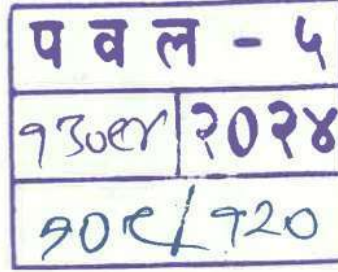 प व ल - ५
१३०९४ २०२४
१०९/१२०